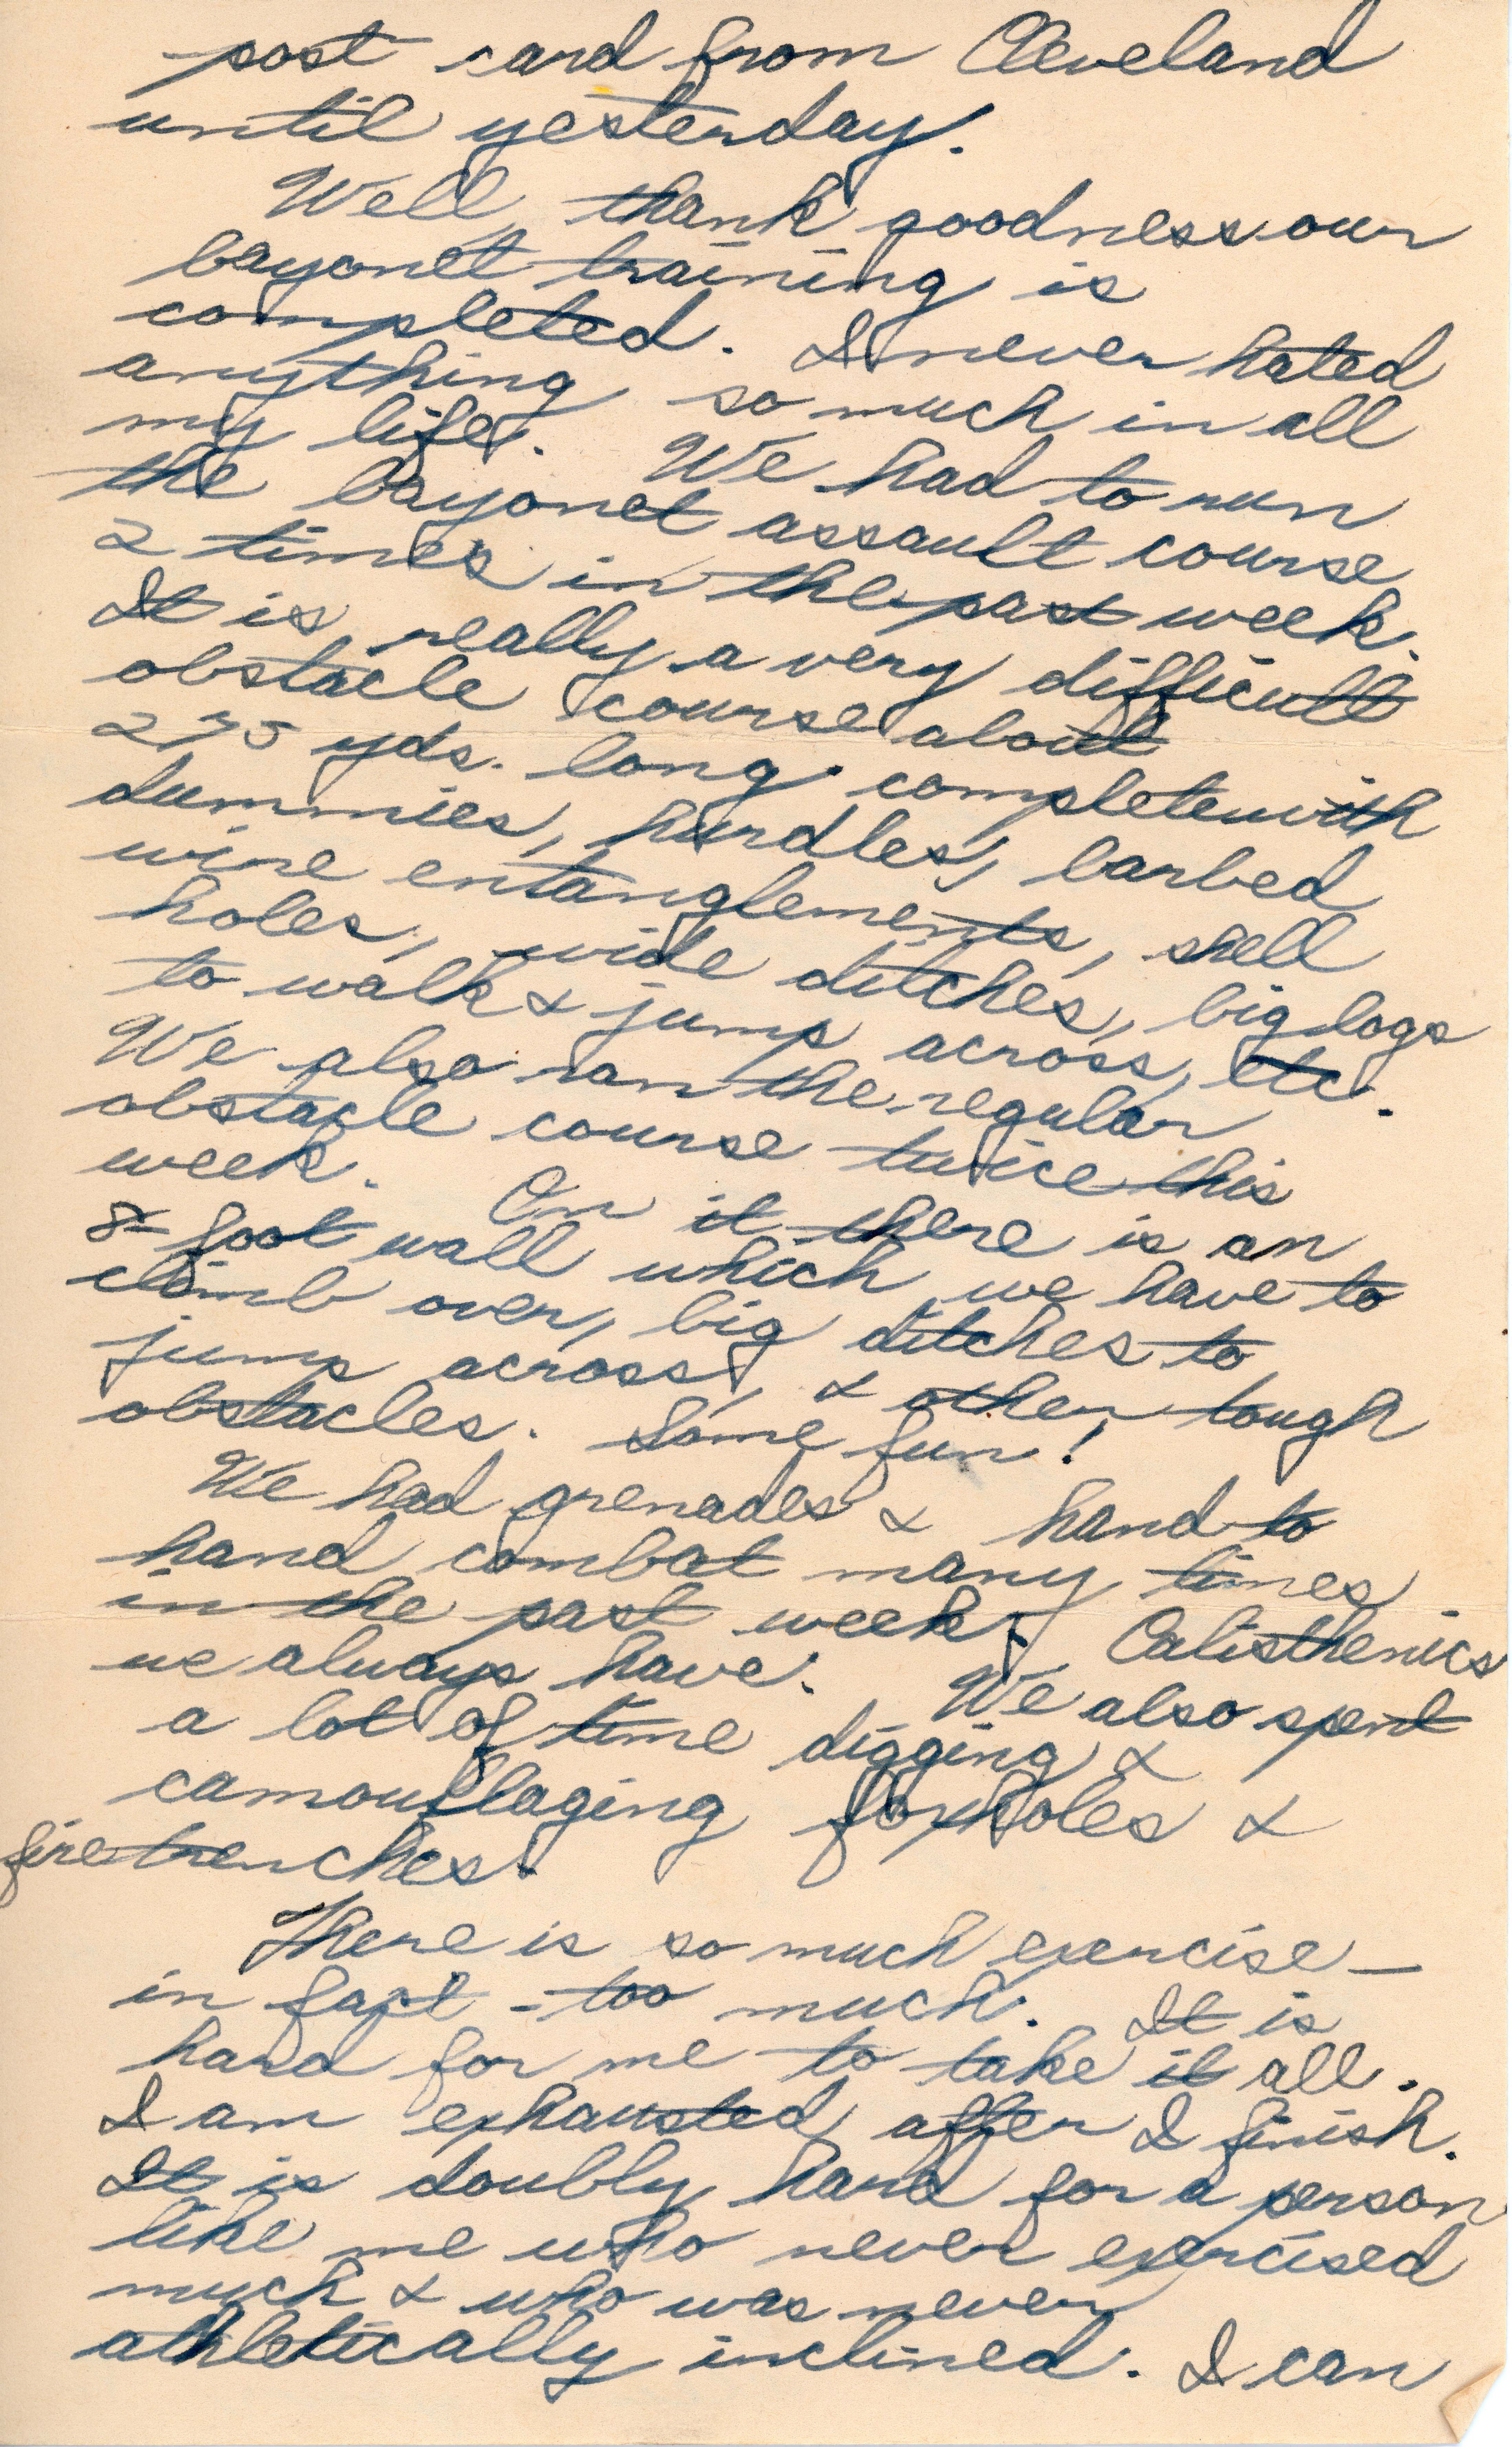 post card from Cleveland
until yesterday.
Well, thank goodness our
bayonet training is
completed. I never hated
anything so much in all
my life. We had to run
the bayonet assault course
2 times in the past week.
It is really a very difficult
obstacle course about
275 yds. long complete with
dummies, hurdles, barbed
wire entanglements, shell
holes, wide ditches, big logs
to walk & jump across, etc.
We also ran the regular
obstacle course twice this
week. On it there is an
8-foot wall which we have to
climb over, big ditches to
jump across, & other tough
obstacles. Some fun!
We had grenades & hand to
hand combat many times
in the past week. Calisthenics
we always have. We also spent
a lot of time digging &
camouflaging foxholes &
fire trenches.
There is so much exercise —
in fact - too much. It is
hard for me to take it all.
I am exhausted after I finish.
It is doubly hard for a person
like me who never exercised
much & who was never
athletically inclined. I can